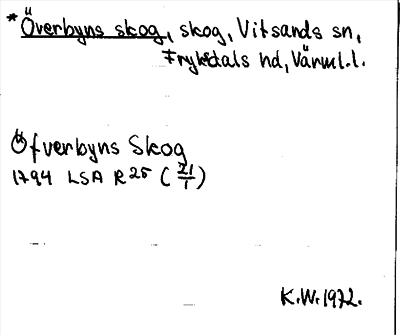 *Överbyns skog, skog, Vitsands sn,
Fryksdals hd, Värml.l.
Öfverbyns Skog
1794 LSA R25 (21/1)
K.W. 1972.